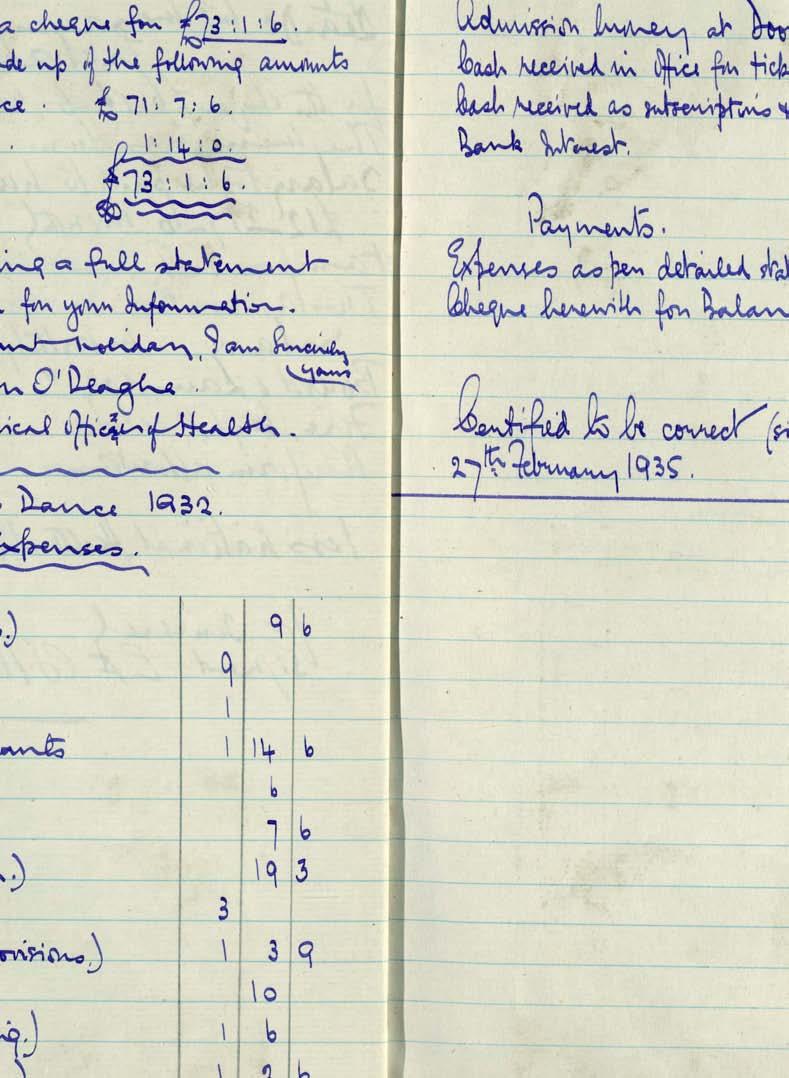 a cheque for £73:1:6.
de up of the following amounts
ce. £ 71: 7: 6.
1: 14: 0.
£73: 1: 6.
ing a full statement
for your Information.
ant holiday, I am Sincerely
yours
n O'Deagha.
ical Officer of Health.
Dance 1932.
Expenses.
s.) 9 6
9
1
ants 1 14 6
6
7 6
19 3
3
ovisions.) 1 3 9
10
1 6
1 2 6
Admission money at Doo
Cash received in Office for tick
Cash received as subscriptions &
Bank Interest.
Payments.
Expenses as per detailed stat
Cheque herewith for Balan
Certified to be correct (si
27th February 1935.